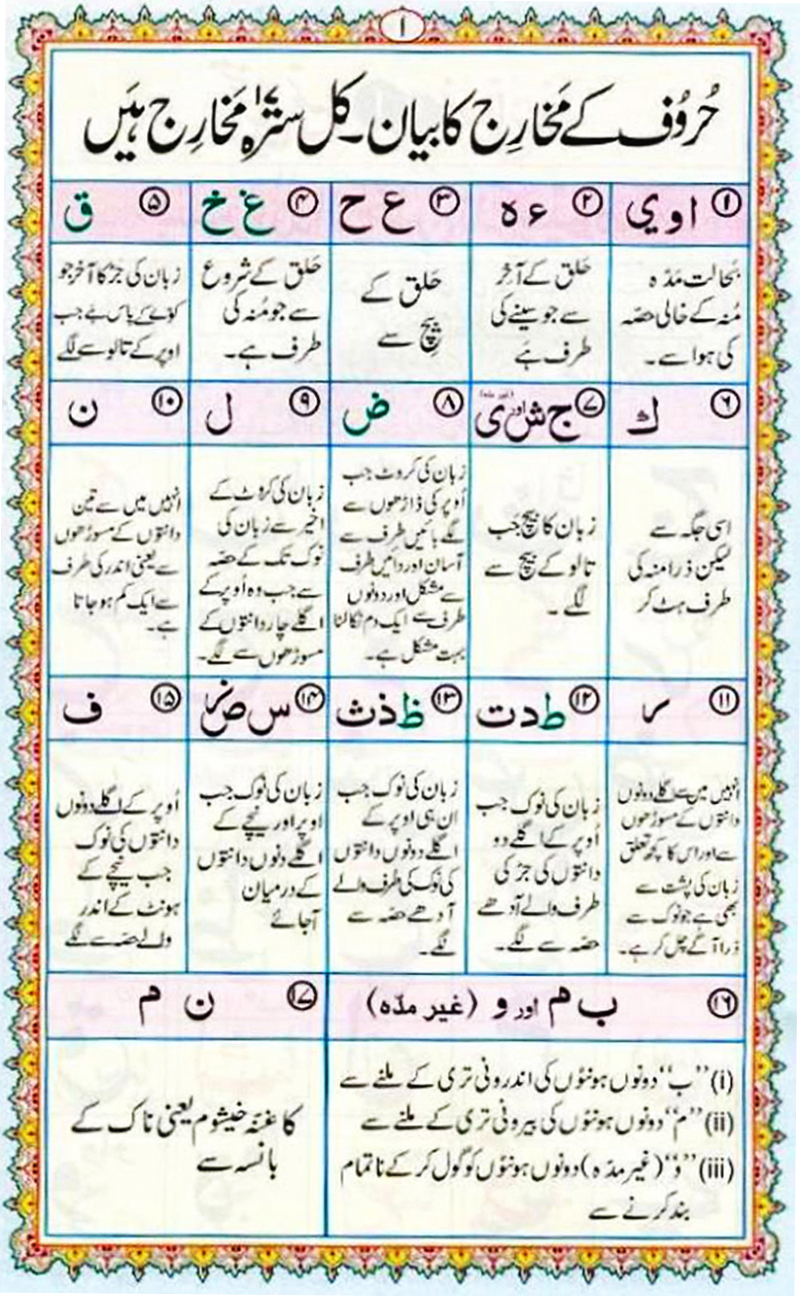 ۱
حُرُوف کے مَخارِج کا بیان۔ کل سترہ ۱۷ مَخارِج ہیَں
۱ ا و ي
بحالت مَدّہ
مُنہ کے خالی حصّہ
کی ہوا سے۔
۲ ء ہ
حَلق کے آخِر
سے جو سینے کی
طرف ہَے
۳ ع ح
حَلق کے
بِیچ سے
۴ غ خ
حَلق کے شروع
سے جو مُنہ کی
طرف ہے۔
۵ ق
زبان کی جڑ کا آخر جو
کوّے کے پاس ہے جب
اوپر کے تالو سے لگے
۶ ك
اسی جگہ سے
لیکن ذرا منہ کی
طرف ہٹ کر
۷ ج ش اور ی (غیر مدہ)
زبان کا بیچ جب
تالو کے بیچ سے
لگے۔
۸ ض
زبان کی کروٹ جب
اُوپر کی ڈاڑھوں سے
لگے بائیں طرف سے
آسان اور دائیں طرف
سے مشکل اور دونوں
طرف سے ایک دم نکالنا
بہت مشکل ہے۔
۹ ل
زبان کی کروٹ کے
اخیر سے زبان کی
نوک تک کے حصّہ
سے جب وہ اُوپر کے
اگلے چار دانتوں کے
مسوڑھوں سے لگے۔
۱۰ ن
انہیں میں سے تین
دانتوں کے مسوڑھوں
سے یعنی اندر کی طرف
سے ایک کم ہو جاتا
ہے۔
۱۱ ر
انہیں میں سے اگلے دونوں
دانتوں کے مسوڑھوں
سے اور اس کا کچھ تعلق
زبان کی پشت سے
بھی ہے جو نوک سے
ذرا آگے چل کر ہے۔
۱۲ ط د ت
زبان کی نوک جب
اُوپر کے اگلے دو
دانتوں کی جڑ کی
طرف والے آدھے
حصّہ سے لگے۔
۱۳ ظ ذ ث
زبان کی نوک جب
ان ہی اوپر کے
اگلے دونوں دانتوں
کی نوک کی طرف والے
آدھے حصّہ سے
لگے۔
۱۴ س ص ز
زبان کی نوک جب
اوپر اور نیچے کے
اگلے دونوں دانتوں
کے درمیان
آجائے
۱۵ ف
اُوپر کے اگلے دونوں
دانتوں کی نوک
جب نیچے کے
ہونٹ کے اندر
والے حصّہ سے لگے
۱۶ ب م اور و (غیر مدّہ)
(i) ”ب“ دونوں ہونٹوں کی اندرونی تری کے ملنے سے
(ii) ”م“ دونوں ہونٹوں کی بیرونی تری کے ملنے سے
(iii) ”وَ“ (غیر مدّہ) دونوں ہونٹوں کو گول کر کے ناتمام
بند کرنے سے
۱۷ ن م
کا غنّہ خیشوم یعنی ناک کے
بانسہ سے